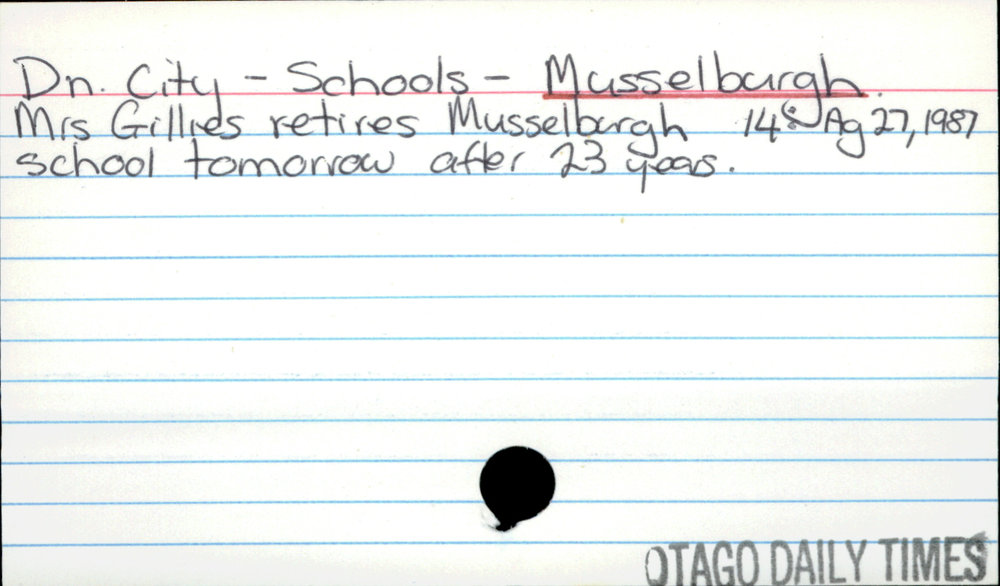 Dn. City - Schools - Musselburgh.
Mrs Gillies retires Musselburgh 14: Ag 27, 1987
school tomorrow after 23 years.
OTAGO DAILY TIMES